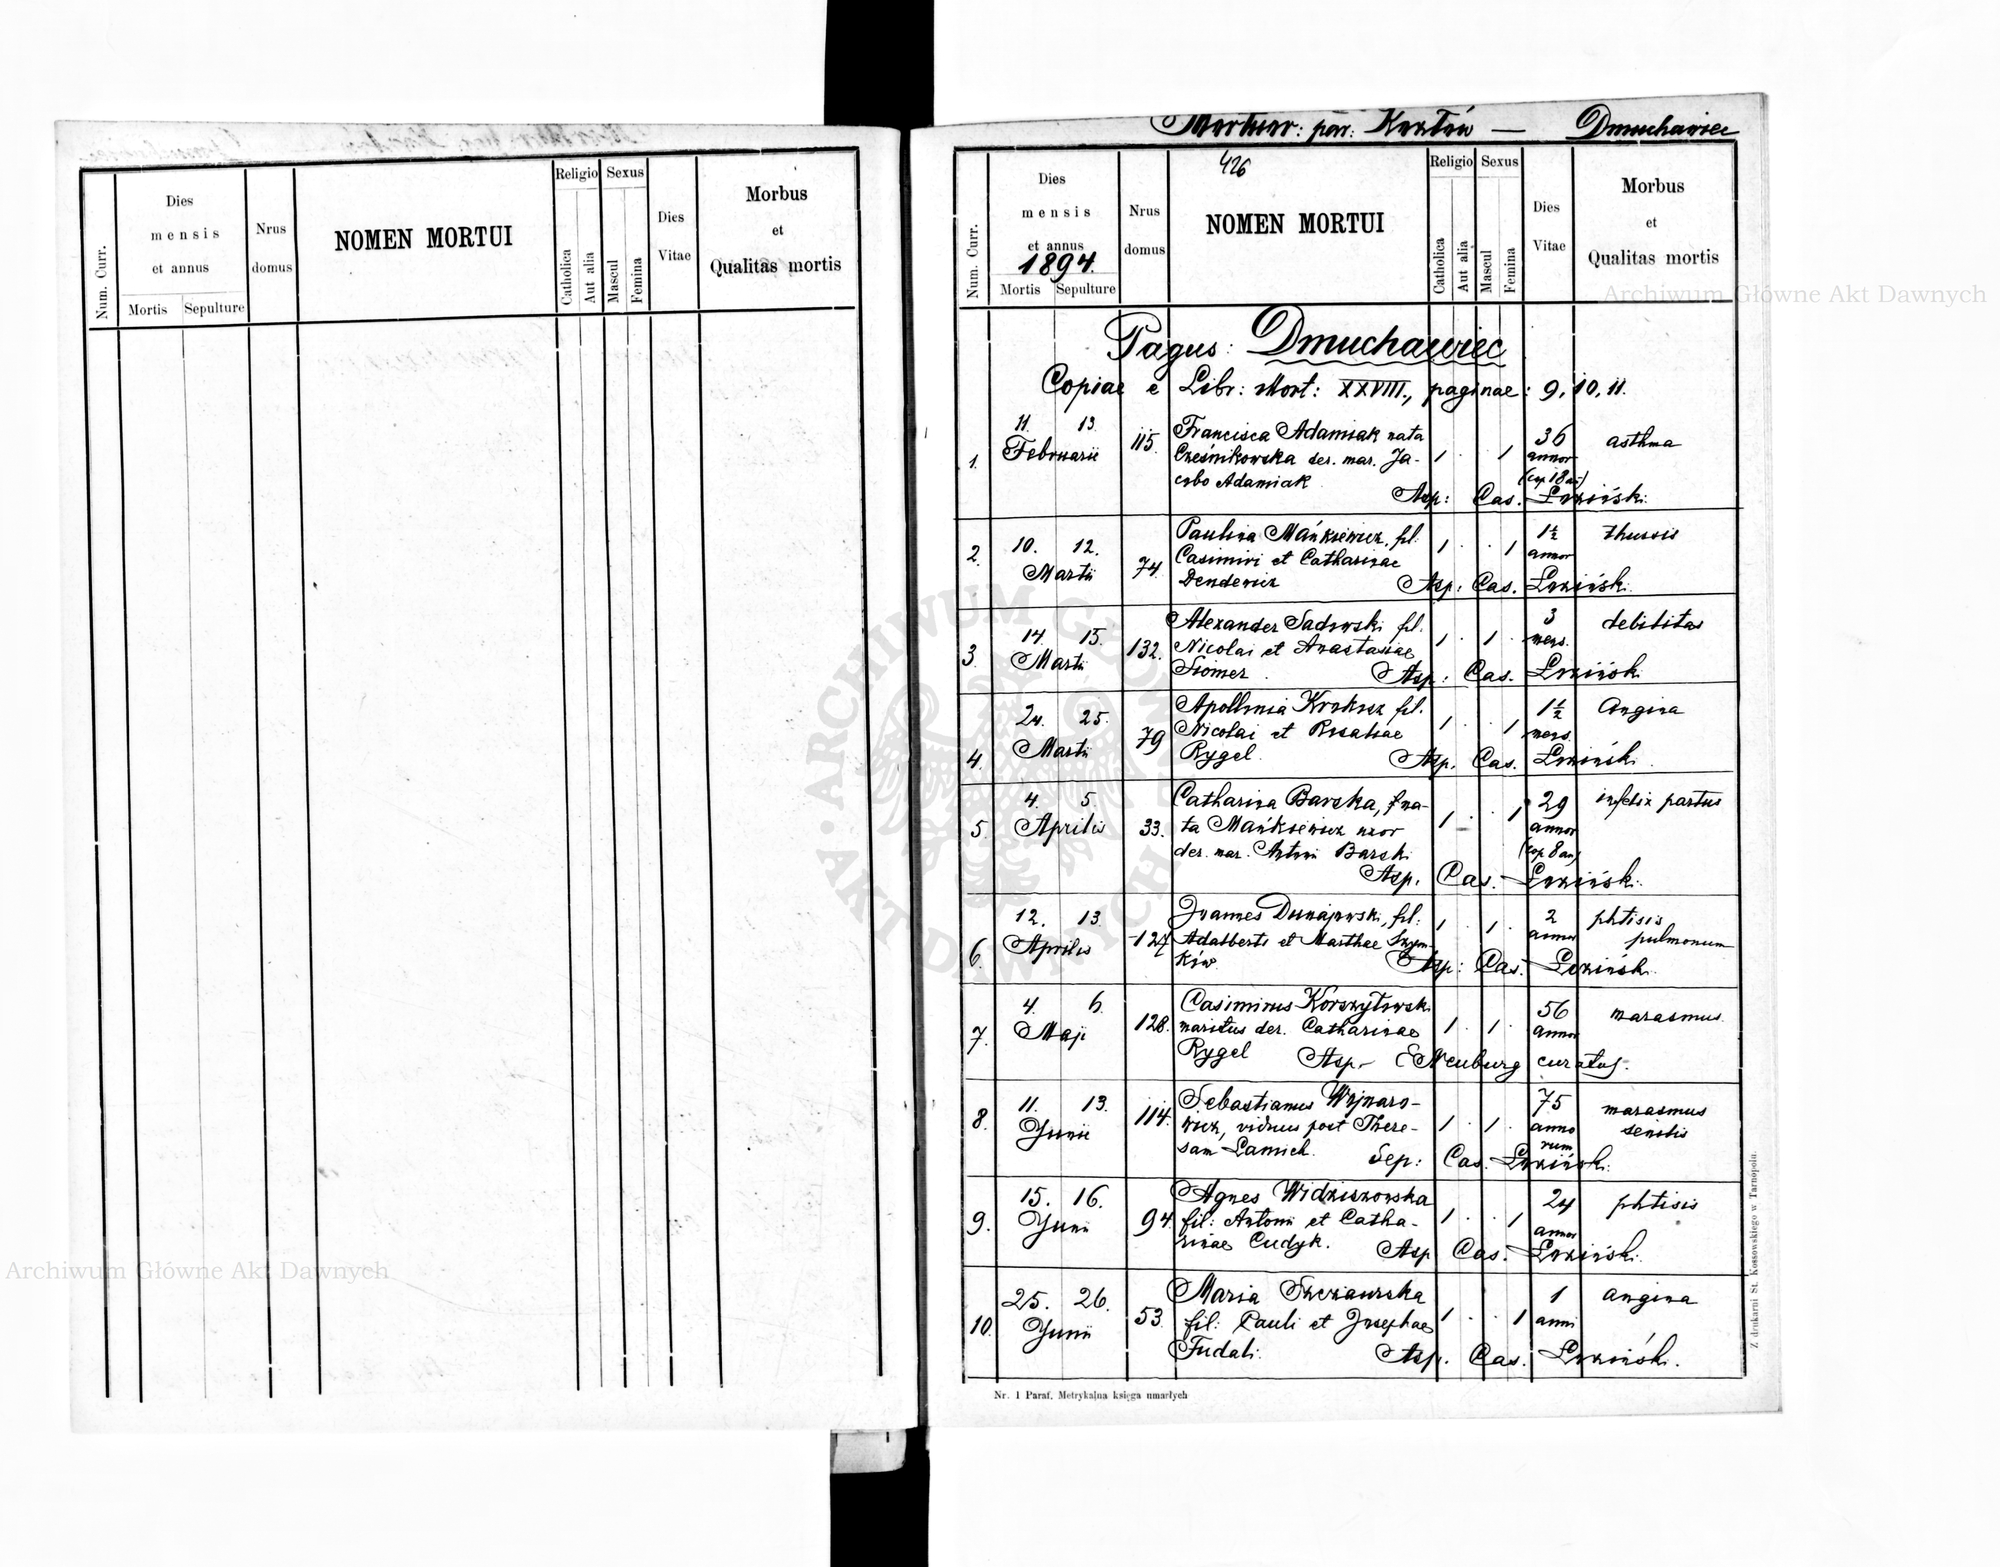 Num. Curr.
Dies
mensis
et annus
Mortis Sepulture
Nrus
domus
NOMEN MORTUI
Religio
Catholica
Aut alia
Sexus
Mascul
Femina
Dies
Vitae
Morbus
et
Qualitas mortis
Dmuchawiec
426
Num. Curr.
Dies
mensis
et annus
1894.
Mortis Sepulture
Nrus
domus
NOMEN MORTUI
Religio
Catholica
Aut alia
Sexus
Mascul
Femina
Dies
Vitae
Morbus
et
Qualitas mortis
Pagus: Dmuchawiec
Copiae e Libr: Mort: XXVIII., paginae: 9, 10, 11.
1. 11. 13. Februarii 115. Francisca Adamiak nata 1 . . 1 36 annor asthma
der. mar. Ja-
cobo Adamiak
(cop 18 an)
Asp: Cas.
2. 10. 12. Martii 74. Paulina Mańksiewicz, fil. 1 . . 1 1½ annor thussis
Casimiri et Catharinae
Dendewicz Asp: Cas.
3. 14 15. Martii 132. Alexander Sadowski fil. 1 . 1 . 3 mens. debilitas
Nicolai et Anastasiae
Asp: Cas.
4. 24. 25. Martii 79 Apollonia fil. 1 . . 1 1½ mens. Angina
Nicolai et Rosaliae
Rygel. Asp. Cas.
5. 4. 5. Aprilis 33. Catharina Barska, na- 1 . . 1 29 annor infelix partus
ta Mańksiewicz uxor
der. mar. Antoni Barski
(cop 8 an)
Asp. Cas.
6. 12. 13. Aprilis 127 Joannes Dunajowski, fil: 1 . 1 . 2 annor phtisis
pulmonum
Adalberti et Marthae Szym-
ków Asp: Cas.
7. 4. 6. Maji 128. Casimirus Korszytowski 1 . 1 . 56 annor marasmus.
maritus der. Catharinae
Rygel Asp.- Neuburg curatus.
8. 11. 13. Junii 114. Sebastianus Wojnaro- 1 . 1 . 75 anno
rum marasmus
senilis
wicz, viduus post There-
sam Lamich. Sep: Cas.
9. 15. 16. Junii 94. Agnes 1 . . 1 24 annor phtisis
fil: Antoni et Catha-
rinae Cudyk. Asp Cas.
10. 25. 26. Junii 53. Maria 1 . . 1 1 anni angina
fil: Pauli et Josephae
Fudali. Asp. Cas.
Nr. 1 Paraf. Metrykalna księga umarłych
Z drukarni St. Kossowskiego w Tarnopolu.
Archiwum Główne Akt Dawnych
Archiwum Główne Akt Dawnych
ARCHIWUM GŁÓWNE AKT DAWNYCH